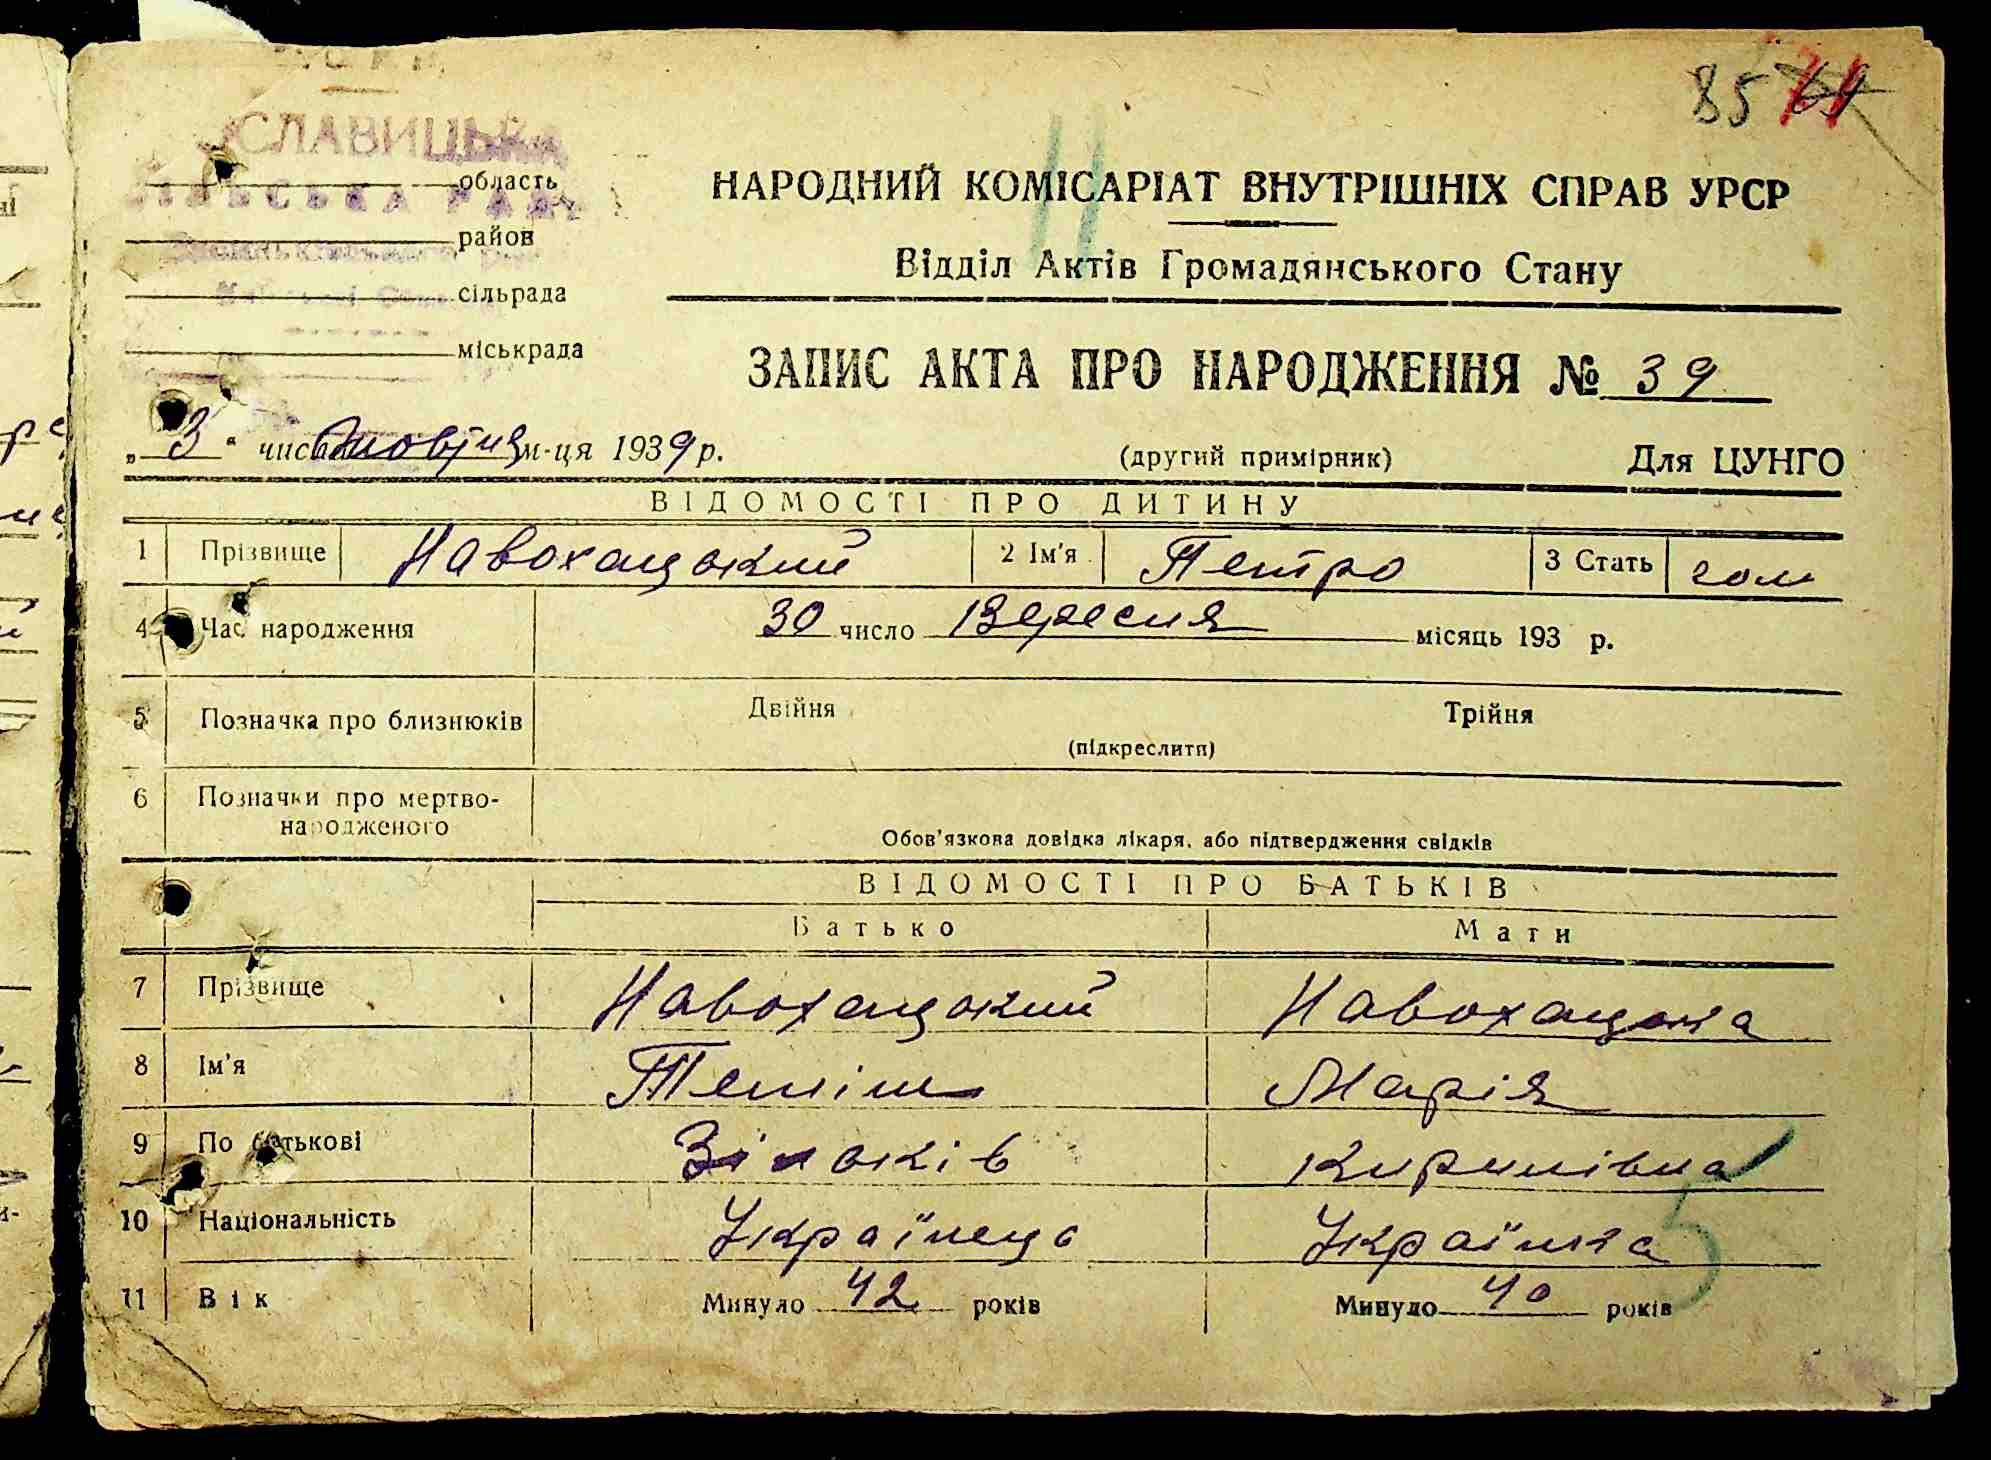 85
СЛАВИЦЬКА
область
СІЛЬСЬКА РАДА
район
сільрада
міськрада
НАРОДНИЙ КОМІСАРІАТ ВНУТРІШНІХ СПРАВ УРСР
Відділ Актів Громадянського Стану
ЗАПИС АКТА ПРО НАРОДЖЕННЯ № 39
„ 3 " числа жовтня м-ця 1939 р.
(другий примірник)
Для ЦУНГО
ВІДОМОСТІ ПРО ДИТИНУ
1 Прізвище Навохацький 2 Ім'я Петро 3 Стать чол
4 Час народження 30 число Вересня місяць 193 р.
5 Позначка про близнюків Двійня Трійня
(підкреслити)
6 Позначки про мертво-
народженого
Обов'язкова довідка лікаря, або підтвердження свідків
ВІДОМОСТІ ПРО БАТЬКІВ
Батько Мати
7 Прізвище Навохацький Навохацька
8 Ім'я Марія
9 По батькові Кирилівна
10 Національність Українець Українка
11 Вік Минуло 42 років Минуло 40 років
5